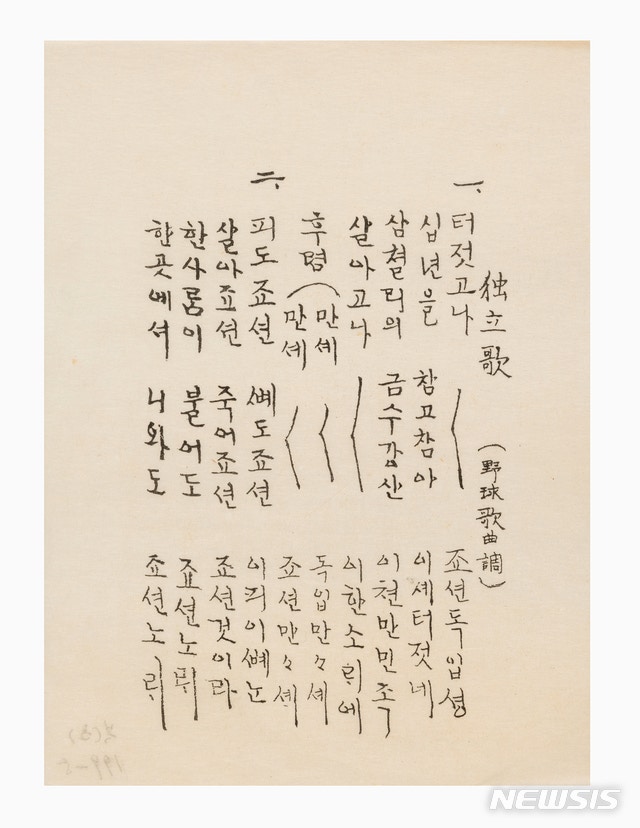 独立歌 (野球歌曲調)
一、터젓고나 〱 죠션독입셩
십년을 참고참아 이셰터젓네
삼쳘리의 금수강산 이쳔만민족
살아고나 〱 이한소ᄅᆡ에
후렴 (만셰 〱 독입만々셰
만셰 〱 죠션만々셰
二、피도죠션 뼈도죠션 이피이뼈는
살아죠션 죽어죠션 죠션것이라
한사롬이 불어도 죠션노ᄅᆡ
한곳에셔 니와도 죠션노ᄅᆡ
NEWSIS